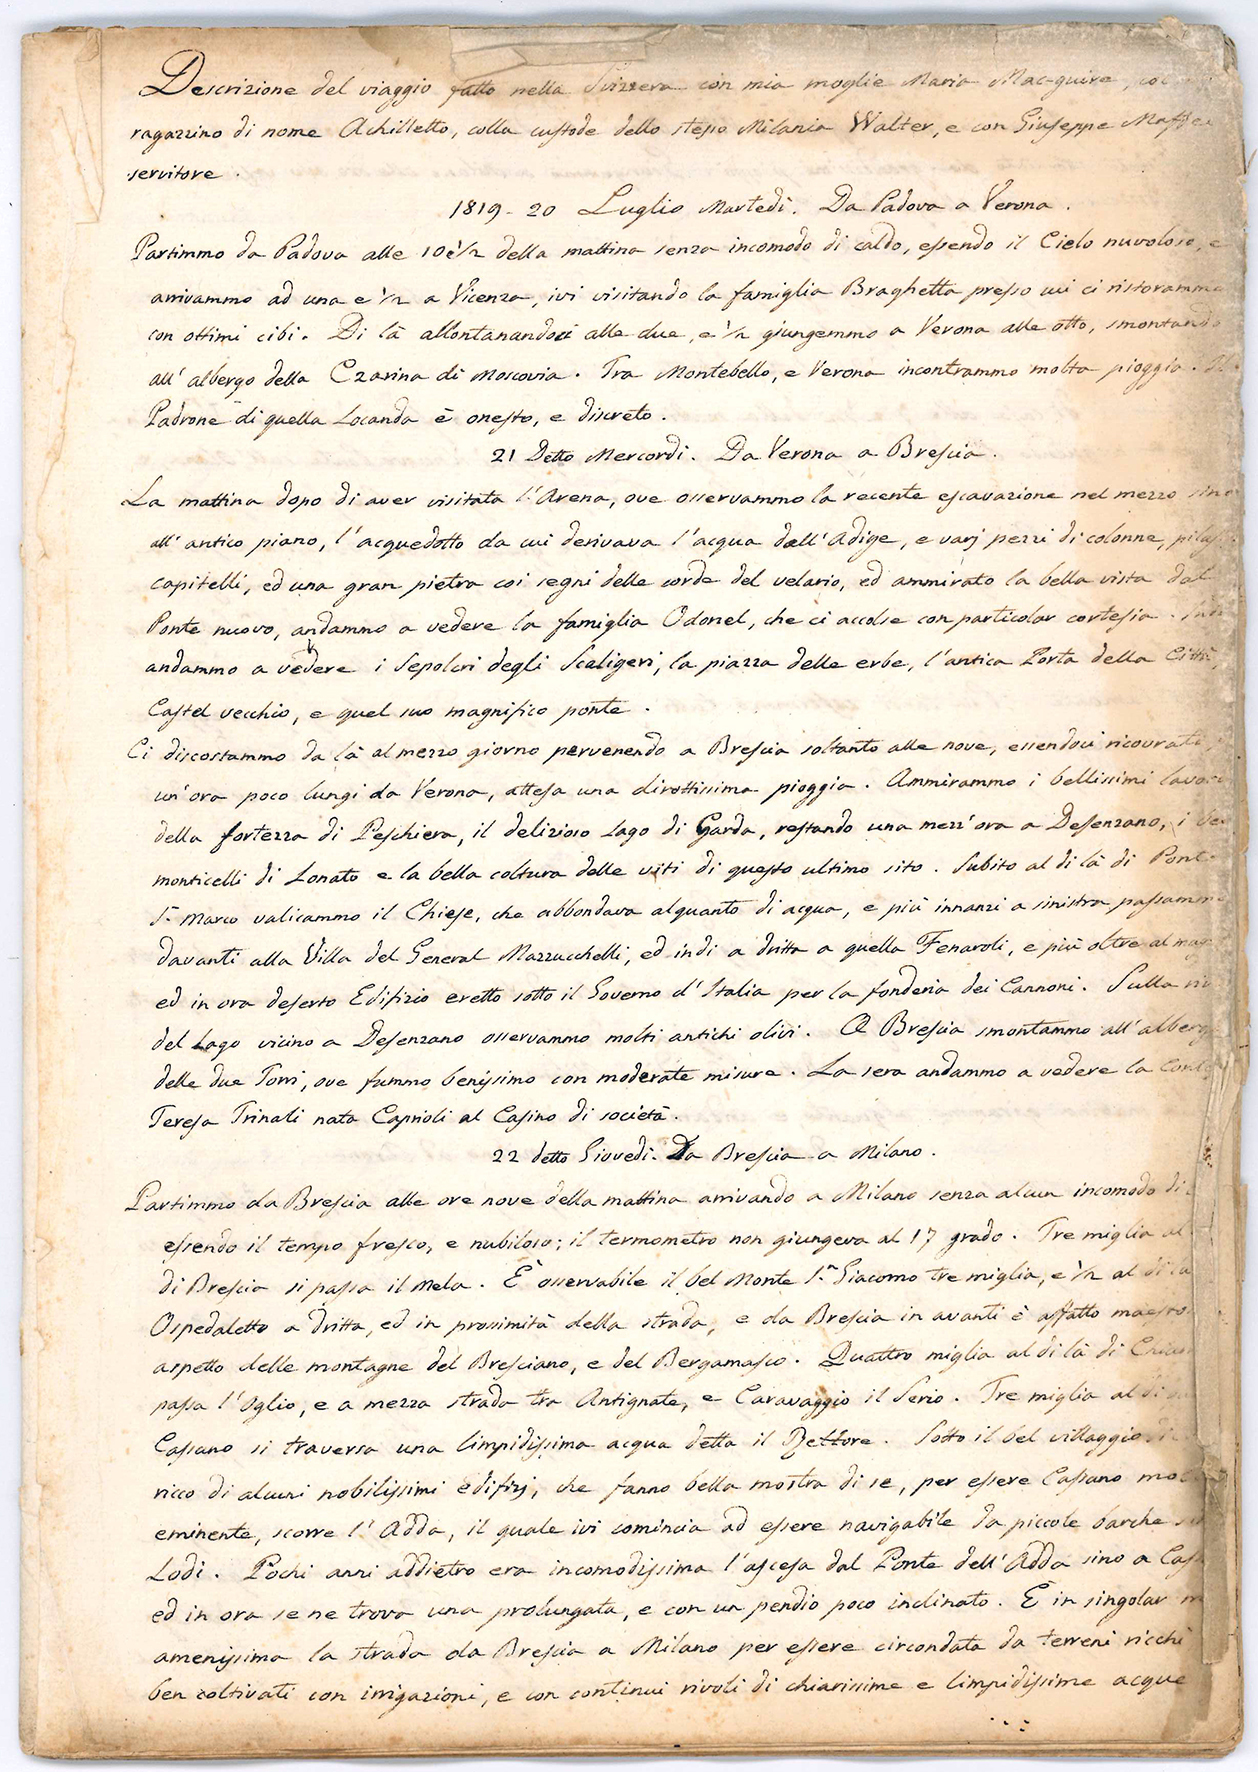 Descrizione del viaggio fatto nella Svizzera con mia moglie Maria Mac-guire, col
ragazzino di nome Achilletto, colla custode dello stesso Milania Walter, e con Giuseppe
servitore.
1819 - 20 Luglio Martedi. Da Padova a Verona.
Partimmo da Padova alle 10 e 1/2 della mattina senza incomodo di caldo, essendo il Cielo nuvoloso, e
arrivammo ad una e 1/2 a Vicenza, ivi visitando la famiglia Braghetta presso cui ci ristorammo
con ottimi cibi. Di là allontanandoci alle due, e 1/2 giungemmo a Verona alle otto, smontando
all'albergo della Czarina di Moscovia. Tra Montebello, e Verona incontrammo molta pioggia. Il
Padrone di quella Locanda è onesto, e discreto.
21 Detto Mercordi. Da Verona a Brescia.
La mattina dopo di aver visitata l'Arena, ove osservammo la recente escavazione nel mezzo sino
all'antico piano, l'acquedotto da cui derivava l'acqua dall'Adige, e varj pezzi di colonne,
capitelli, ed una gran pietra coi segni delle corde del velario, ed ammirato la bella vista dal
Ponte nuovo, andammo a vedere la famiglia Odonel, che ci accolse con particolar cortesia.
andammo a vedere i Sepolcri degli Scaligeri, la piazza delle erbe, l'antica Porta della Città,
Castel vecchio, e quel suo magnifico ponte.
Ci discostammo da là al mezzo giorno pervenendo a Brescia soltanto alle nove, essendoci ricovrati
un'ora poco lungi da Verona, attesa una dirottissima pioggia. Ammirammo i bellissimi lavori
della fortezza di Peschiera, il delizioso Lago di Garda, restando una mezz'ora a Desenzano, i
monticelli di Lonato e la bella coltura delle viti di questo ultimo sito. Subito al di là di Ponte
S. Marco valicammo il Chiese, che abbondava alquanto di acqua, e più innanzi a sinistra passammo
davanti alla Villa del General Mazzucchelli, ed indi a dritta a quella Fenaroli, e più oltre al
ed in ora deserto Edifizio eretto sotto il Governo d'Italia per la fonderia dei Cannoni. Sulla riva
del Lago vicino a Desenzano osservammo molti antichi olivi. A Brescia smontammo all'albergo
delle due Torri, ove fummo benissimo con moderate misure. La sera andammo a vedere la
Teresa Trinali nata Caprioli al Casino di società.
22 detto Giovedi. Da Brescia a Milano.
Partimmo da Brescia alle ore nove della mattina arrivando a Milano senza alcun incomodo di
essendo il tempo fresco, e nubiloso; il termometro non giungeva al 17 grado. Tre miglia al
di Brescia si passa il Mela. È osservabile il bel Monte S.n Giacomo tre miglia, e 1/2 al di là
Ospedaletto a dritta, ed in prossimità della strada, e da Brescia in avanti è affatto
aspetto delle montagne del Bresciano, e del Bergamasco. Quattro miglia al di là di
passa l'Oglio, e a mezza strada tra Antignate, e Caravaggio il Serio. Tre miglia al di
Cassano si traversa una limpidissima acqua detta il Rettore. Sotto il bel villaggio di
ricco di alcuni nobilissimi edifizj, che fanno bella mostra di se, per essere Cassano
eminente, scorre l'Adda, il quale ivi comincia ad essere navigabile da piccole barche
Lodi. Pochi anni addietro era incomodissima l'ascesa dal Ponte dell'Adda sino a
ed in ora se ne trova una prolungata, e con un pendio poco inclinato. È in singolar
amenissima la strada da Brescia a Milano per essere circondata da terreni ricchi
ben coltivati con irrigazioni, e con continui rivoli di chiarissime e limpidissime acque